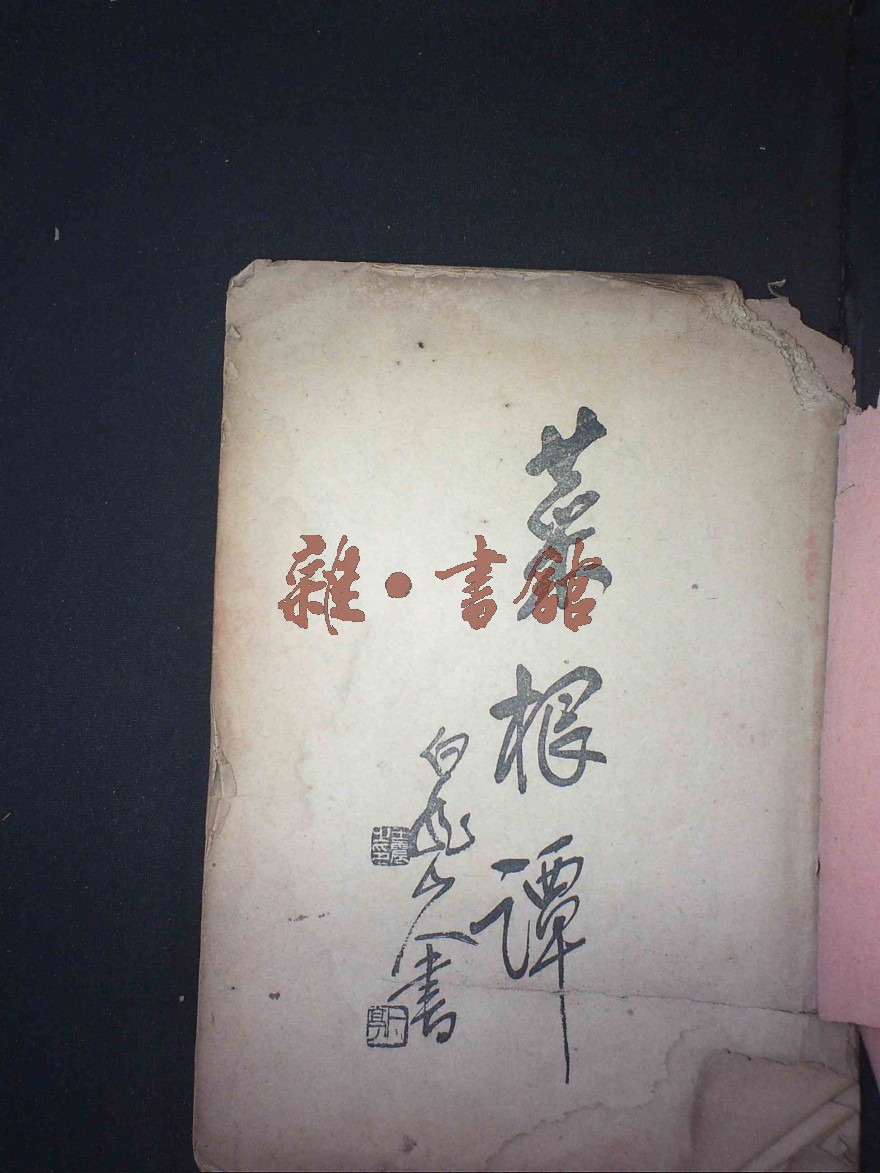 菜根譚
白龍山人書
雜·書館